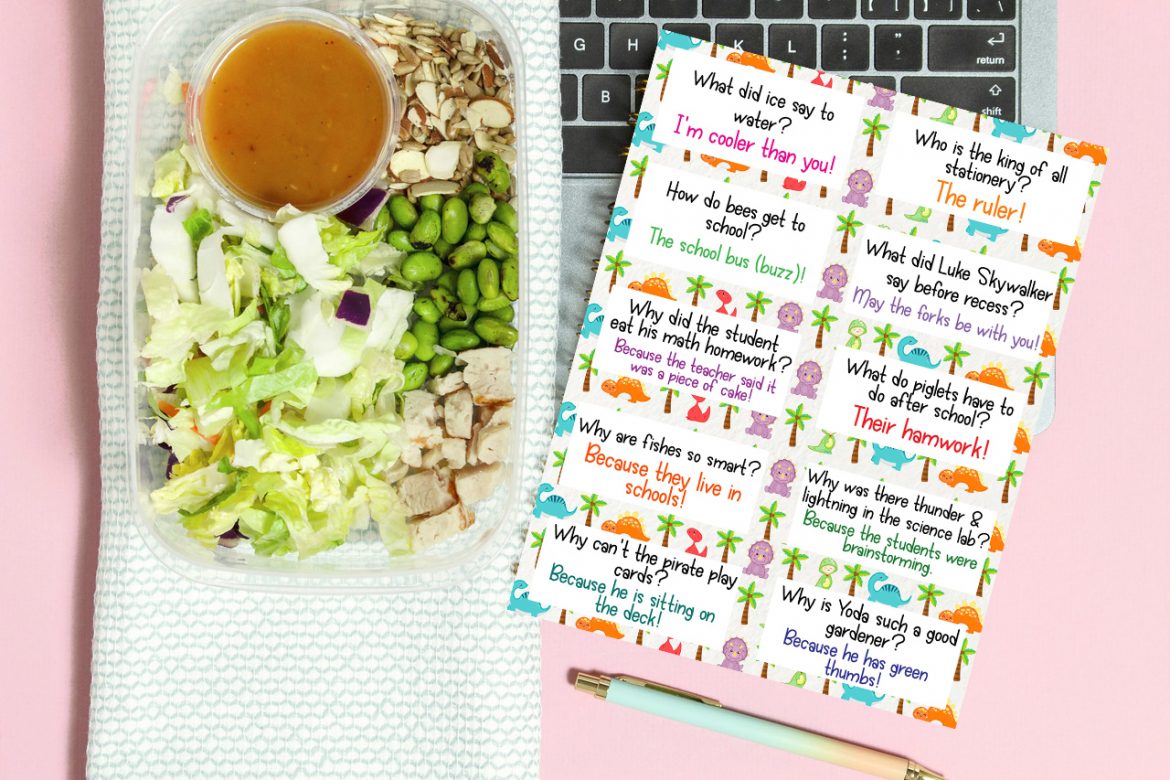 G H K L : ; " ' return
B shift
What did ice say to
water?
I'm cooler than you!
Who is the king of all
stationery?
The ruler!
How do bees get to
school?
The school bus (buzz)!
What did Luke Skywalker
say before recess?
May the forks be with you!
Why did the student
eat his math homework?
Because the teacher said it
was a piece of cake!
What do piglets have to
do after school?
Their hamwork!
Why are fishes so smart?
Because they live in
schools!
Why was there thunder &
lightning in the science lab?
Because the students were
brainstorming.
Why can't the pirate play
cards?
Because he is sitting on
the deck!
Why is Yoda such a good
gardener?
Because he has green
thumbs!